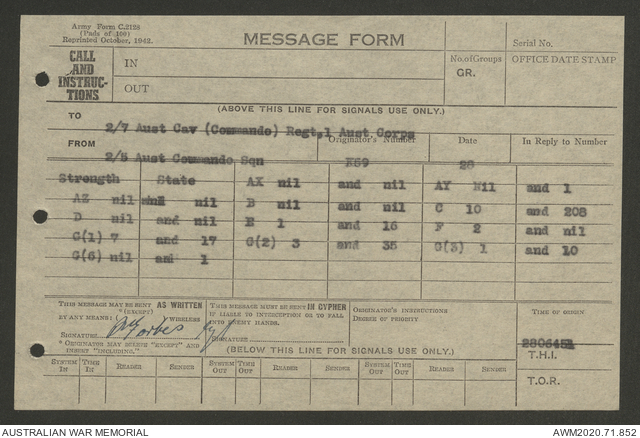 Army Form C.2128
(Pads of 100)
Reprinted October, 1942.
MESSAGE FORM
Serial No.
CALL AND INSTRUCTIONS
IN
OUT
No. of Groups
GR.
OFFICE DATE STAMP
(ABOVE THIS LINE FOR SIGNALS USE ONLY.)
TO 2/7 Aust Cav (Commando) Regt, 1 Aust Corps
FROM Originator's Number Date In Reply to Number
2/5 Aust Commando Sqn K59 28
Strength State AX nil and nil AY Nil and 1
AZ nil and nil B nil and nil C 10 and 208
D nil and nil E 1 and 16 F 2 and nil
G(1) 7 and 17 G(2) 3 and 35 G(3) 1 and 10
G(6) nil and 1
THIS MESSAGE MAY BE SENT AS WRITTEN
(EXCEPT)
BY ANY MEANS: WIRELESS
SIGNATURE
* ORIGINATOR MAY DELETE "EXCEPT" AND
INSERT "INCLUDING."
THIS MESSAGE MUST BE SENT IN CYPHER
IF LIABLE TO INTERCEPTION OR TO FALL
INTO ENEMY HANDS.
SIGNATURE
ORIGINATOR'S INSTRUCTIONS
DEGREE OF PRIORITY
TIME OF ORIGIN
T.H.I.
T.O.R.
(BELOW THIS LINE FOR SIGNALS USE ONLY.)
SYSTEM IN TIME IN READER SENDER SYSTEM OUT TIME OUT READER SENDER SYSTEM OUT TIME OUT READER SENDER
AUSTRALIAN WAR MEMORIAL AWM2020.71.852